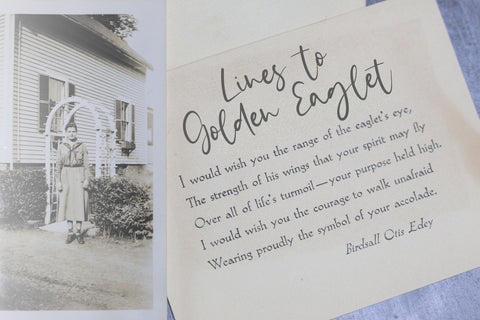 Lines to
Golden Eaglet
I would wish you the range of the eaglet's eye,
The strength of his wings that your spirit may fly
Over all of life's turmoil—your purpose held high.
I would wish you the courage to walk unafraid
Wearing proudly the symbol of your accolade.
Birdsall Otis Edey